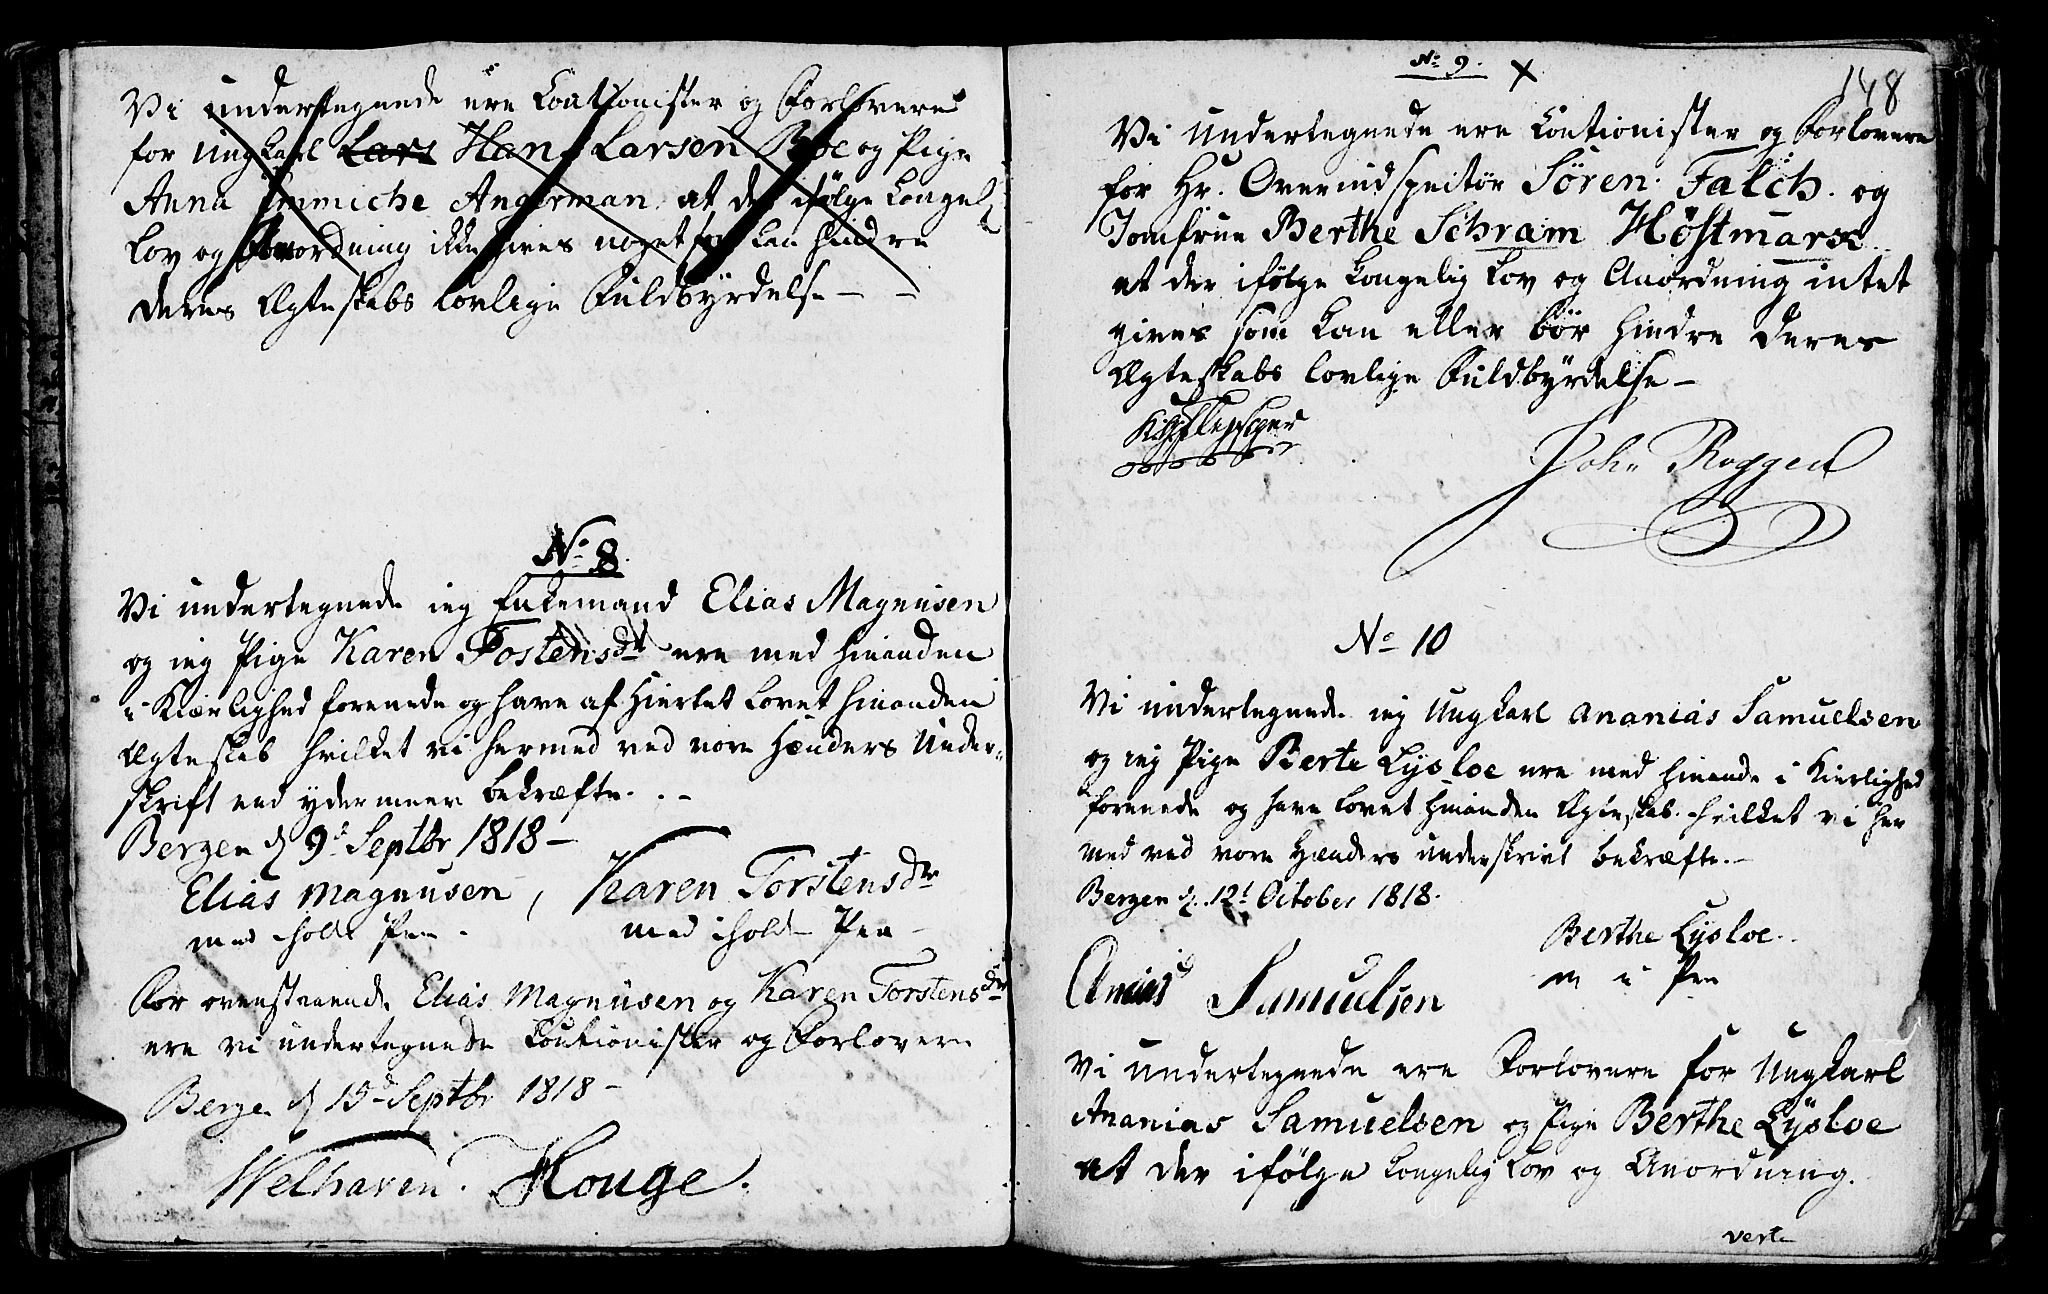 Vi undertegnede ere Coutionister og Forlovere
for Ungkarl Lars Hans Larsen Boe og Pige
Anna Emmiche Angerman at der ifølge Kongel:
Lov og Anordning ikke gives noget som kan hindre
deres Ægteskabs lovlige Fuldbyrdelse –
No 8
Vi undertegnede ieg Enkemand Elias Magnusen
og ieg Pige Karen Tostensdr ere med hinanden
i Kiærlighed forenede og have af Hiertet lovet hinanden
Ægteskab hvilket vi hermed ved vore Hænders Under-
skrift end ydermeere bekræfte. –
Bergen d 9d Septbr 1818 –
Elias Magnusen, Karen Torstensdr
med iholdt Pen – med iholdt Pen –
For ovenstaaende Elias Magnusen og Karen Torstensdr
ere vi undertegnede Coutionister og Forlovere
Bergen d 15d Septbr 1818 –
Welhaven. Houge.
No 9. x
148
Vi undertegnede ere Coutionister og Forlovere
for Hr. Overindspectör Sören Falch og
Jomfrue Berthe Schram Höstmark
at der ifølge Kongelig Lov og Anordning intet
gives som kan eller bör hindre deres
Ægteskabs lovlige Fuldbyrdelse –
John Roggen
No 10
Vi undertegnede ieg Ungkarl Ananias Samuelsen
og ieg Pige Berte Lysloe ere med hinande i Kierlighed
forenede og have lovet hinanden Ægteskab hvilket vi her
med ved vore Hænders underskrivt bekræfte. –
Bergen d. 12t October 1818.
Berthe Lysloe
m i Pen
Samuelsen
Vi undertegnede ere Forlovere for Ungkarl
Ananias Samuelsen og Pige Berthe Lysloe
at der ifølge Kongelig Lov og Anordning.
verte